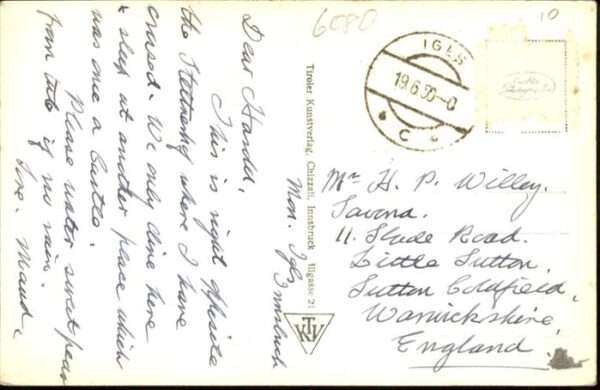 6080
10
IGLS
19.6.50-0
C
Tiroler Kunstverlag, Chizzali, Innsbruck, Illgasse 21
TKV
Mon. Igls Innsbruck
Dear Harold,
This is right opposite
the Hotel where I have
crossed. We only dine here
& sleep at another place which
was once a Castle.
Please water sweet peas
from tub if no rain.
Love. Maud.
Mr H. P. Willey.
Savona.
11. Slade Road.
Little Sutton,
Sutton Coldfield,
Warwickshire,
England.